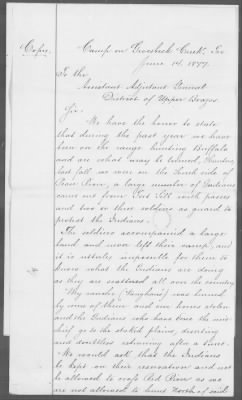 Copy.
Camp on Groesbeck Creek, Tex
June 14. 1877.
To the
Assistant Adjutant General
District of Upper Brazos
Sir.
We have the honor to state
that during the past year we have
been on the range hunting Buffalo
and are what may be termed, Hunters,
last fall we were on the South side of
Pease River, a large number of Indians
came out from Fort Sill with passes
and two or three soldiers as guard to
protect the Indians.
The soldiers accompanied a large
band and never left their camp, and
it is utterly impossible for them to
know what the Indians are doing
as they are scattered all over the country.
My ranche was burned
by some of them and our horses stolen
and the Indians who have done the mis-
chief go to the staked plains, deserting
and doubtless returning after a time.
We would ask that the Indians
be kept on their reservation and not
be allowed to cross Red River as we
are not allowed to hunt North of said